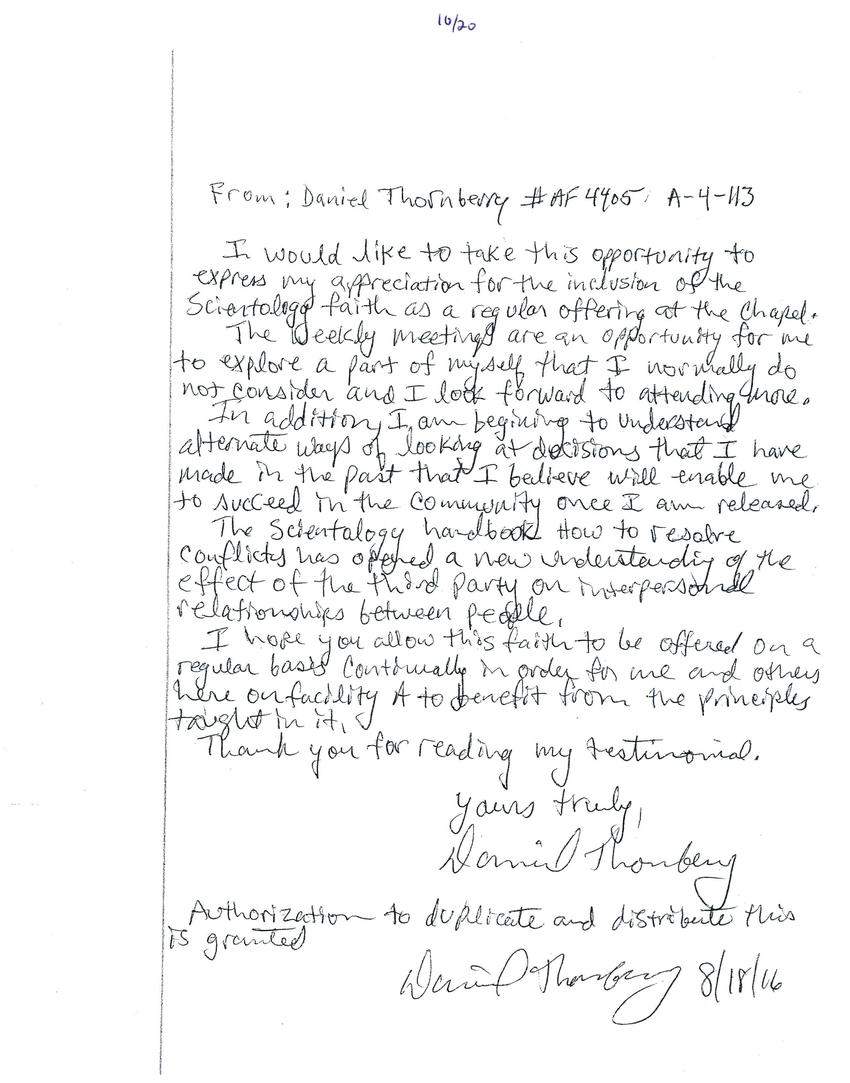 10/20
From: Daniel Thornberry #AF4405, A-4-113
I would like to take this opportunity to
express my appreciation for the inclusion of the
Scientology faith as a regular offering at the Chapel.
The Weekly meetings are an opportunity for me
to explore a part of myself that I normally do
not consider and I look forward to attending more.
In addition, I am begining to understand
alternate ways of looking at decisions that I have
made in the past that I believe will enable me
to succeed in the community once I am released.
The Scientalogy handbook How to resolve
Conflicts has opened a new understanding of the
effect of the third party on interpersonal
relationships between people.
I hope you allow this faith to be offered on a
regular basis Continually in order for me and others
here on facility A to benefit from the principles
taught in it.
Thank you for reading my testimonial.
Yours truly,
Daniel Thornberry
Authorization to duplicate and distribute this
is granted
Daniel Thornberry 8/18/16